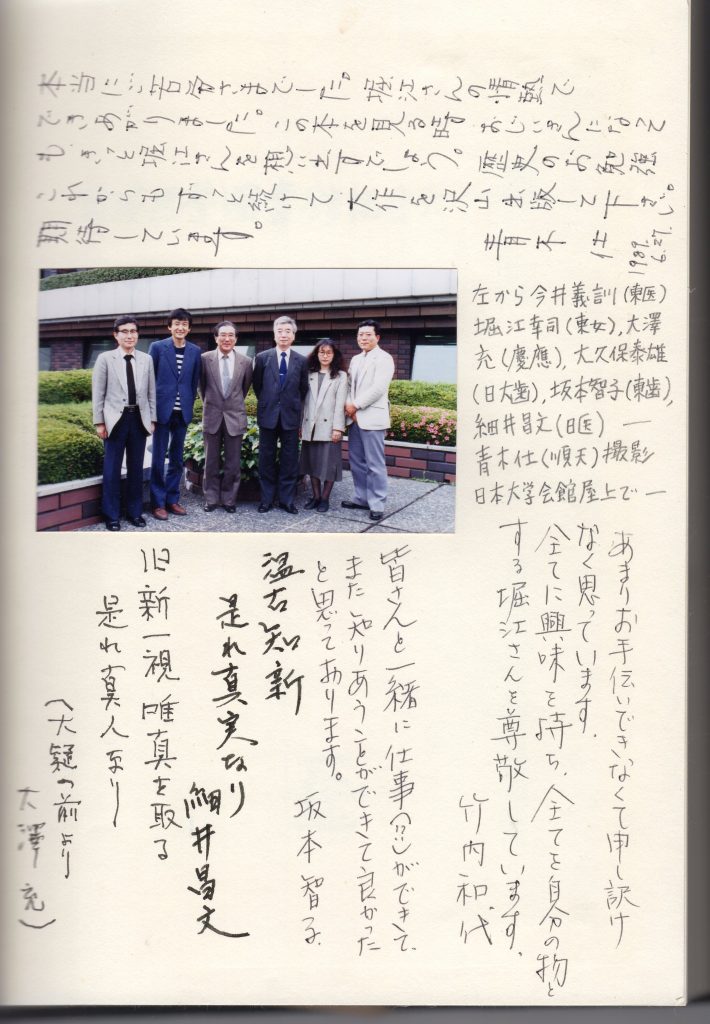 本当にご苦労さまでした。堀江さんの情熱で
できあがりました。この本を見る時 おじいさんになって
もきっと堀江さんを想い出すでしょう。歴史のお勉強
これからもずっと続けて大作を沢山出版して下さい。
期待しています。
青木 仕
1989.
6.27.
左から今井義訓(東医)
堀江幸司(東女),大澤
充(慶應),大久保泰雄
(日大歯),坂本智子(東歯),
細井昌文(日医) ―
青木仕(順天)撮影
日本大学会館屋上で―
あまりお手伝いできなくて申し訳け
なく思っています.
全てに興味を持ち、全てを自分の物と
する堀江さんを尊敬しています.
竹内和代
皆さんと一緒に仕事(??)ができて、
また知りあうことができて良かった
と思っております。
坂本智子.
温古知新
是れ真実なり
細井昌文
旧新一視 唯真を取る
是れ真人なり
(大疑の前より
大澤 充)